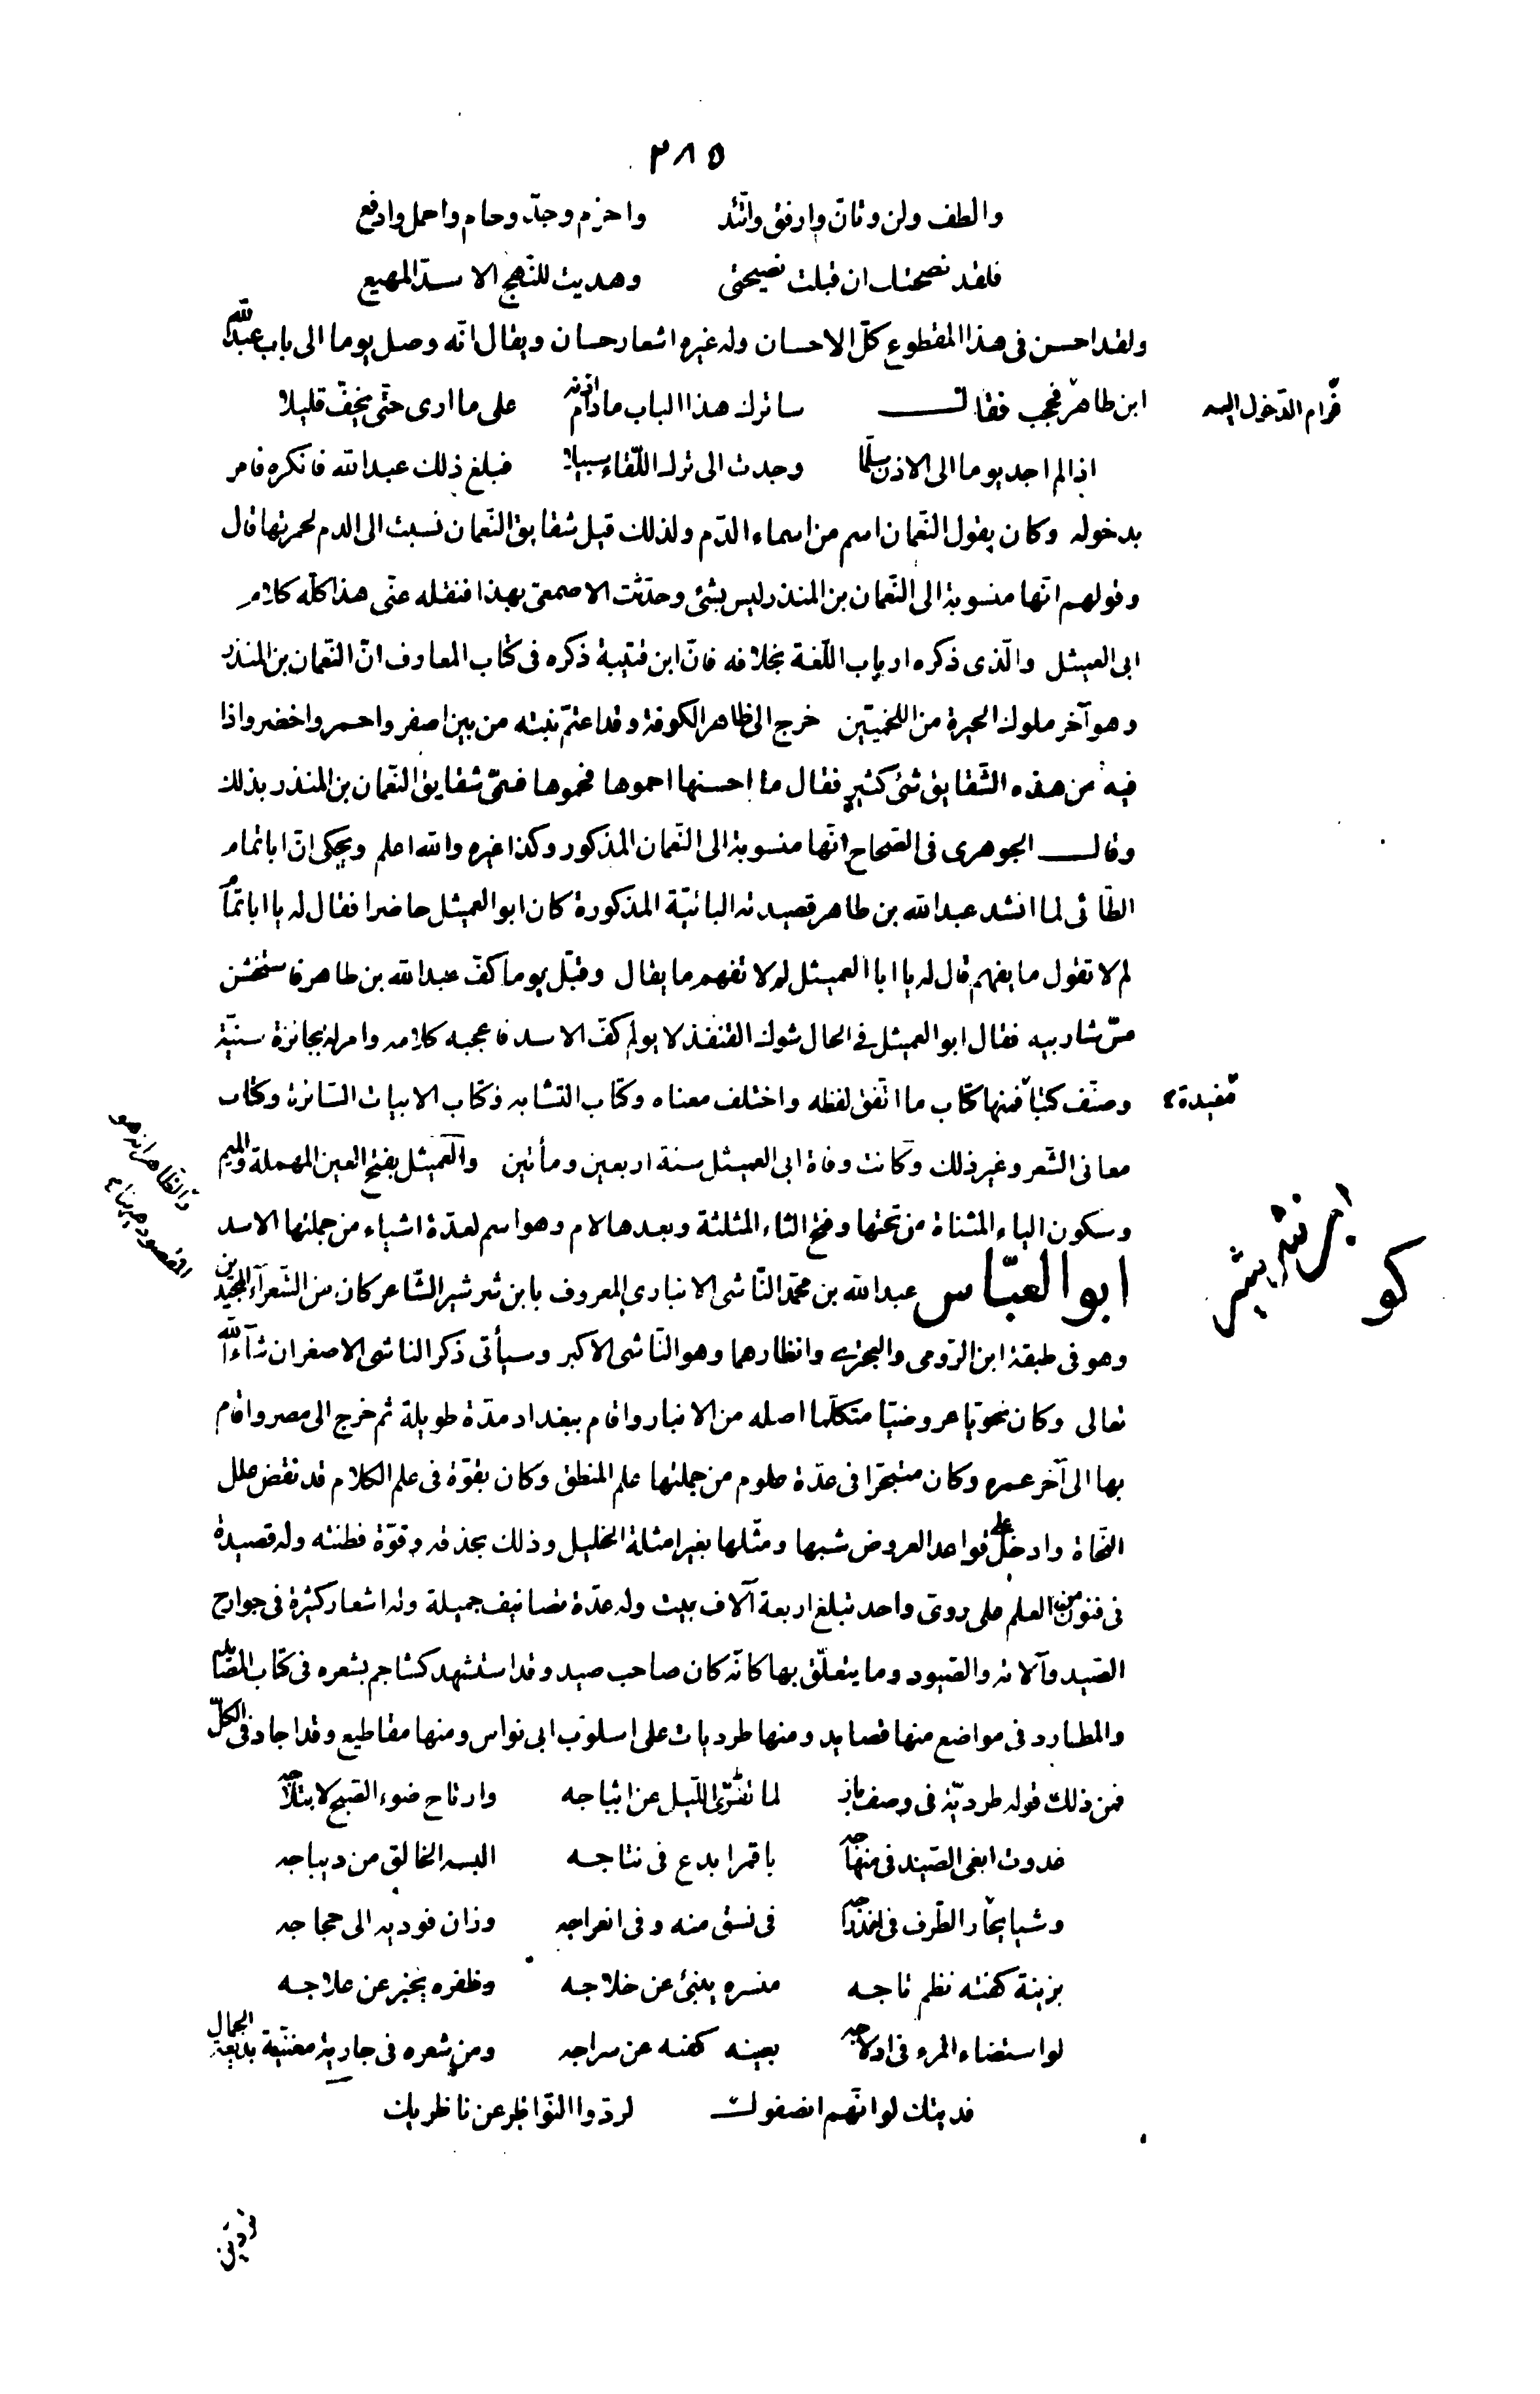 ٢٨٥
والطف ولن وتانّ وارفق واتّئد واحزم وجدّ وحام واحمل وادفع
فلقد نصحتك ان قبلت نصيحتى وهديت للنّهج الاسدّ المهيع
ولقد احسن فى هذا المقطوع كلّ الاحسان وله غيره اشعار حسان ويقال انّه وصل يوما الى باب عبد الله
ابن طاهر فحجب فقال ساترك هذا الباب ما دام اذنه على ما ارى حتّى يخفّ قليلا
فرام الدّخول اليه
اذا لم اجد يوما الى الاذن سلّما وجدت الى ترك اللّقاء سبيلا فبلغ ذلك عبد الله فانكره فامر
بدخوله وكان يقول النّعمان اسم من اسماء الدّم ولذلك قيل شقايق النّعمان نسبت الى الدم لحمرتها قال
وقولهم انّها منسوبة الى النّعمان بن المنذر ليس بشئ وحدّثت الاصمعى بهذا فنقله عنّى هذا كلّه كلام
ابى العميثل والّذى ذكره ارباب اللّغة بخلافه فانّ ابن قتيبة ذكره فى كتاب المعارف انّ النّعمان بن المنذر
وهو آخر ملوك الحيرة من اللخميّين خرج الى ظاهر الكوفة وقد اعتمّ نبته من بين اصفر واحمر واخضر واذا
فيه من هذه الشّقايق شئ كثير فقال ما احسنها احموها فحموها فسمّى شقايق النّعمان بن المنذر بذلك
وقال الجوهرى فى الصّحاح انّها منسوبة الى النّعمان المذكور وكذا غيره والله اعلم ويحكى انّ ابا تمام
الطّائى لما انشد عبد الله بن طاهر قصيدته البائيّة المذكورة كان ابو العميثل حاضرا فقال له يا ابا تمّام
لم لا تقول ما يفهم قال له يا ابا العميثل لم لا تفهم ما يقال وقبّل يوما كفّ عبد الله بن طاهر فاستخشن
مسّ شاربيه فقال ابو العميثل فى الحال شوك القنفذ لا يولم كفّ الاسد فاعجبه كلامه وامر له بجائزة سنيّة
وصنّف كتبا فمنها كتاب ما اتّفق لفظه واختلف معناه وكتاب التشابه وكتاب الابيات السّائرة وكتاب
مفيدة
معانى الشّعر وغير ذلك وكانت وفاة ابى العميثل سنة اربعين ومأتين والعميثل بفتح العين المهملة والميم
وسكون الياء المثناة من تحتها وفتح الثاء المثلثة وبعدها لام وهو اسم لعدّة اشياء من جملتها الاسد
والظّاهر انه هو المقصود هيهنا
ابن شرشير
ابو العبّاس عبد الله بن محمّد النّاشى الانبارى المعروف بابن شرشير الشّاعر كان من الشّعرآء المجيدين
وهو فى طبقة ابن الرّومى والبحترى وانظارهما وهو النّاشى الاكبر وسيأتى ذكر الناشى الاصغر ان شآء الله
تعالى وكان نحويّا عروضيّا متكلّما اصله من الانبار واقام ببغداد مدّة طويلة ثم خرج الى مصر واقام
بها الى آخر عمره وكان متبحّرا فى عدّة علوم من جملتها علم المنطق وكان بقوّة فى علم الكلام قد نقض علل
النّحاة وادخل على قواعد العروض شبها ومثّلها بغير امثلة الخليل وذلك بحذقه وقوّة فطنته وله قصيدة
فى فنون من العلم على روىّ واحد تبلغ اربعة آلاف بيت وله عدّة تصانيف جميلة وله اشعار كثيرة فى جوارح
الصّيد وآلاته والصّيود وما يتعلّق بها كانّه كان صاحب صيد وقد استشهد كشاجم بشعره فى كتاب المصايد
والمطارد فى مواضع منها قصايد ومنها طرديات على اسلوب ابى نواس ومنها مقاطيع وقد اجاد فى الكلّ
فمن ذلك قوله طرديّة فى وصف باز لما تفرّى اللّيل عن اثباجه وارتاح ضوء الصّبح لابتلاجه
غدوت ابغى الصّيد فى منهاجه باقمر ابدع فى نتاجه البسه الخالق من ديباجه
وشيا يحار الطّرف فى اندراجه فى نسق منه وفى انعراجه وزان فوديه الى حجاجه
بزينة كفته نظم تاجه منسره ينبئ عن خلاجه وظفره يخبر عن علاجه
لو استضاء المرء فى ادلاجه بعينه كفته عن سراجه ومن شعره فى جارية مغنّية بديعة الجمال
فديتك لو انّهم انصفوك لردّوا النّواظر عن ناظريك